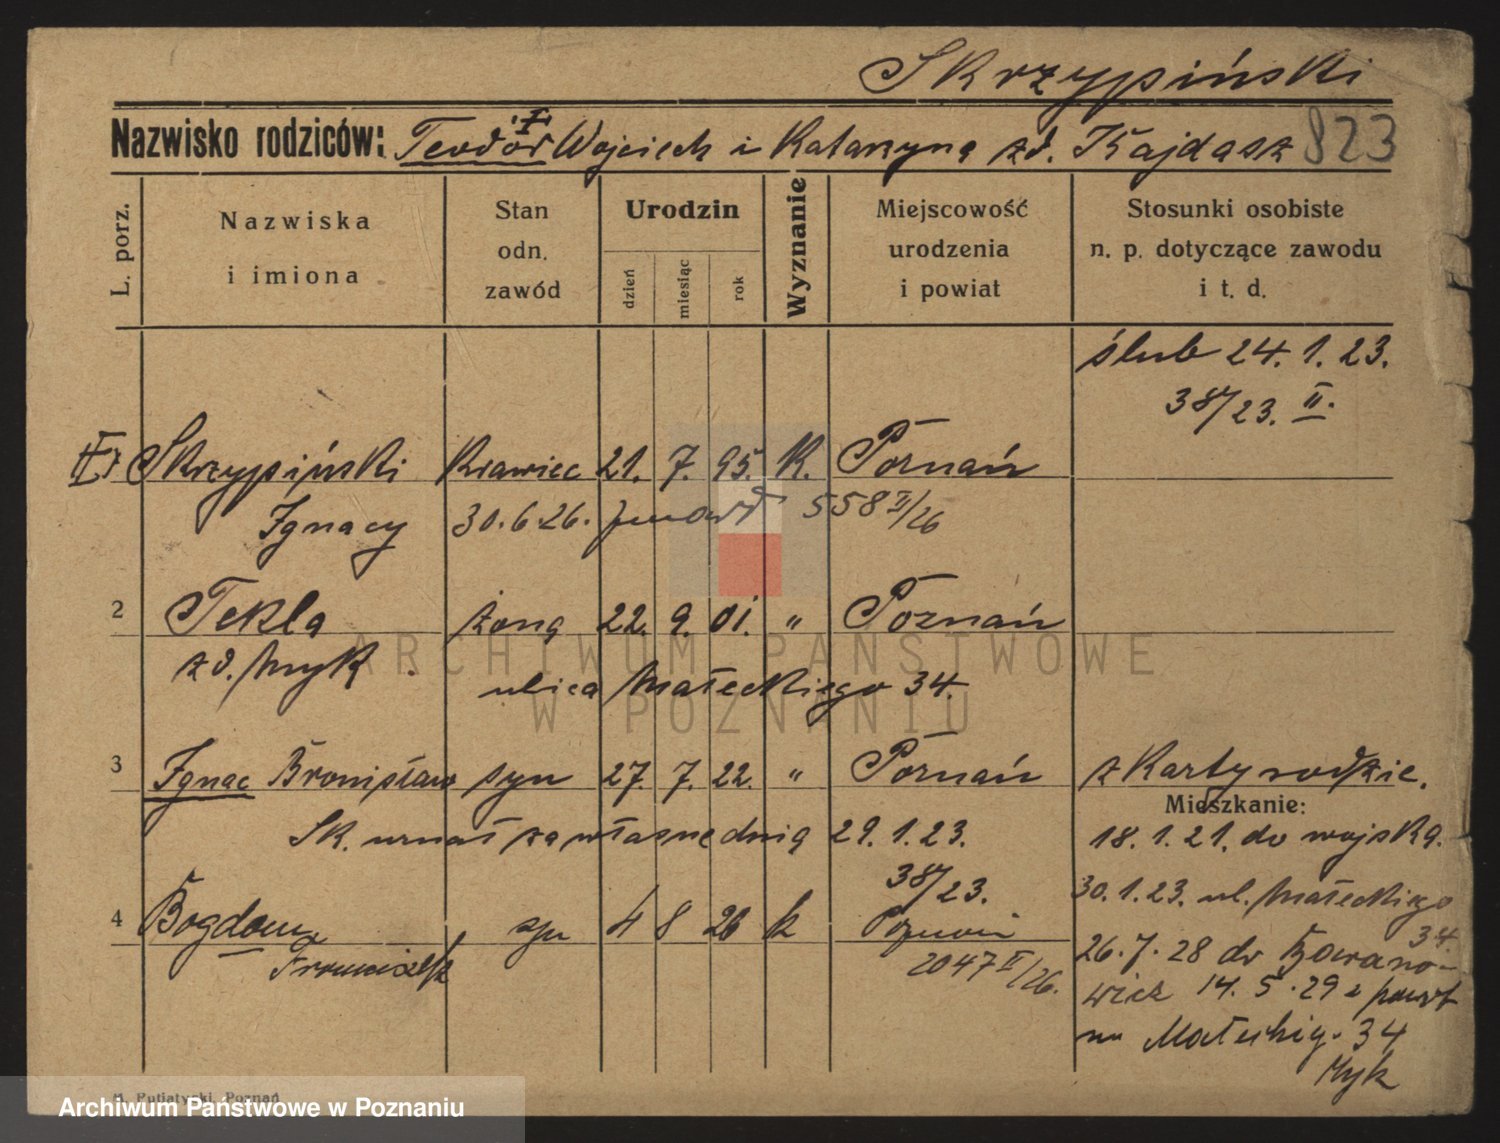 Skrzypiński
Nazwisko rodziców: Teodor Wojciech i Katarzyna zd. Kajdasz 823
L. porz.
Nazwiska i imiona
Stan odn. zawód
Urodzin
dzień miesiąc rok
Wyznanie
Miejscowość urodzenia i powiat
Stosunki osobiste n. p. dotyczące zawodu i t. d.
ślub 24. 1. 23.
38/23. II.
Skrzypiński krawiec 21. 7. 95. K. Poznań
Ignacy 30. 6. 26. 558 II/26
2 Tekla żona 22. 9. 01. " Poznań
zd. Myk
ulica Małeckiego 34.
3 Ignac Bronisław syn 27. 7. 22. " Poznań z Karty rodzic.
Mieszkanie:
Sk. uznał za własne dnia 29. 1. 23. 18. 1. 21. do wojska.
38/23. 30. 1. 23. ul. Małeckiego 34.
4 Bogdan syn 4 8 26 k Poznań
Franciszek 2047 II/26.
26. 7. 28 do
14. 5. 29 z powrt
na Małeckieg. 34
Myk
M. Putiatycki, Poznań
Archiwum Państwowe w Poznaniu
ARCHIWUM PAŃSTWOWE
W POZNANIU